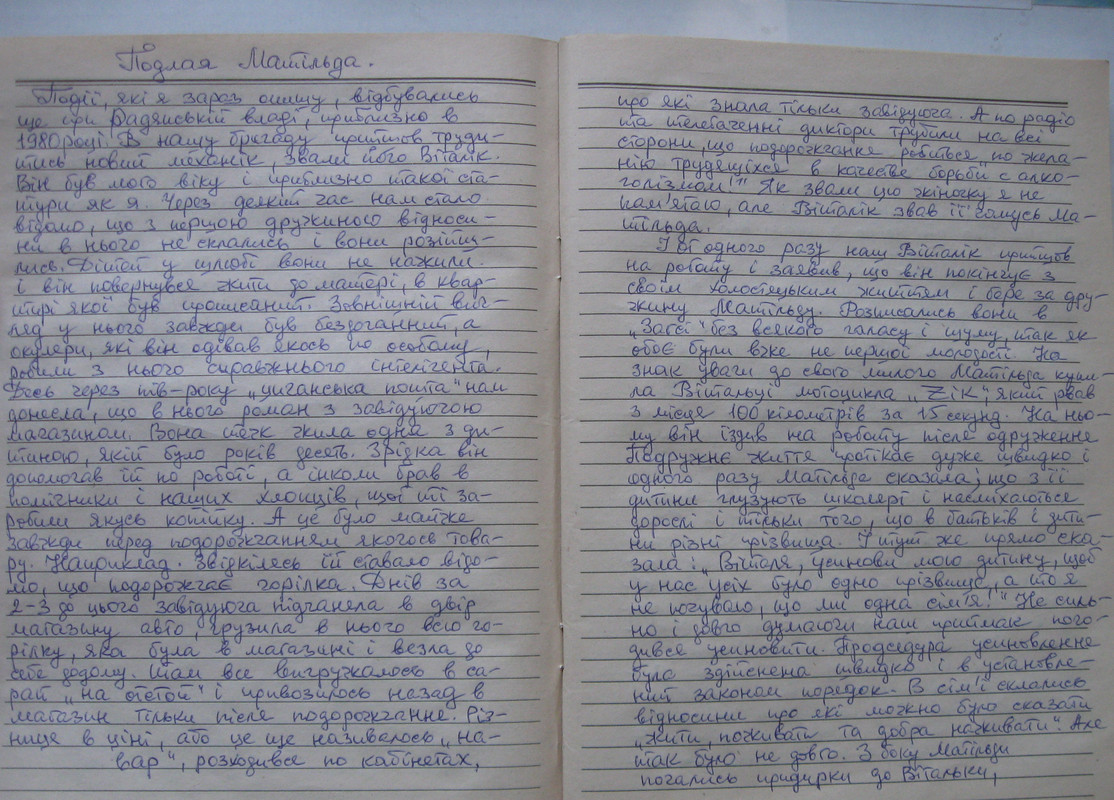 Подлая Матільда.
Події, які я зараз опишу, відбувались
ще при Радянській владі, приблизно в
1980 році. В нашу бригаду прийшов труди-
тись новий механік, звали його Віталік.
Він був мого віку і приблизно такої ста-
тури як я. Через деякий час нам стало
відомо, що з першою дружиною відноси-
ни в нього не склались і вони розійш-
лись. Дітей у шлюбі вони не нажили
і він повернувся жити до матері, в квар-
тирі якої був прописаний. Зовнішній виг-
ляд у нього завжди був бездоганний, а
окуляри, які він одівав якось по особому,
робили з нього справжнього інтелігента.
Десь через пів-року „циганська пошта" нам
донесла, що в нього роман з завідуючою
магазином. Вона теж жила одна з ди-
тиною, якій було років десять. Зрідка він
допомогав їй по роботі, а інколи брав в
помічники і наших хлопців, щоб ті за-
робили якусь копійку. А це було майже
завжди перед подорожчанням якогось това-
ру. Наприклад. Звідкілясь їй ставало відо-
мо, що подорожчає горілка. Днів за
2-3 до цього завідуюча підганяла в двір
магазину авто, грузила в нього всю го-
рілку, яка була в магазині і везла до
себе додому. Там все вигружалось в са-
рай „на отстой" і привозилось назад в
магазин тільки після подорожчання. Різ-
ниця в ціні, або це ще називалось „на-
вар", розходився по кабінетах,
про які знала тільки завідуюча. А по радіо
та телебаченні диктори трубили на всі
сторони, що подорожчання робиться „по жела-
нію трудящіхся в качестве борьби с алко-
голізмом!" Як звали цю жіночку я не
пам'ятаю, але Віталік звав її чомусь Ма-
тільда.
І от одного разу наш Віталік прийшов
на роботу і заявив, що він покінчує з
своїм холостяцьким життям і бере за дру-
жину Матільду. Розписались вони в
„Загсі" без всякого галасу і шуму, так як
обоє були вже не першої молодості. На
знак уваги до свого милого Матільда купи-
ла Вітальці мотоцикла „Zік", який рвав
з місця 100 кілометрів за 15 секунд. На ньо-
му він їздив на роботу після одруження
Подружнє життя протікає дуже швидко і
одного разу Матільда сказала, що з її
дитини глузують школярі і насміхаються
дорослі і тільки того, що в батьків і дити-
ни різні прізвища. І тут же прямо ска-
зала: „Віталя, усинови мою дитину, щоб
у нас усіх було одно прізвище, а то я
не почуваю, що ми одна сім'я!" Не силь-
но і довго думаючи наш приймак пого-
дився усиновити. Процедура усиновлення
була здійснена швидко і в установле-
ний законом порядок. В сім'ї склались
відносини про які можно було сказати
„Жити, поживати та добра наживати". Але
так було не довго. З боку Матільди
почались придирки до Вітальки,